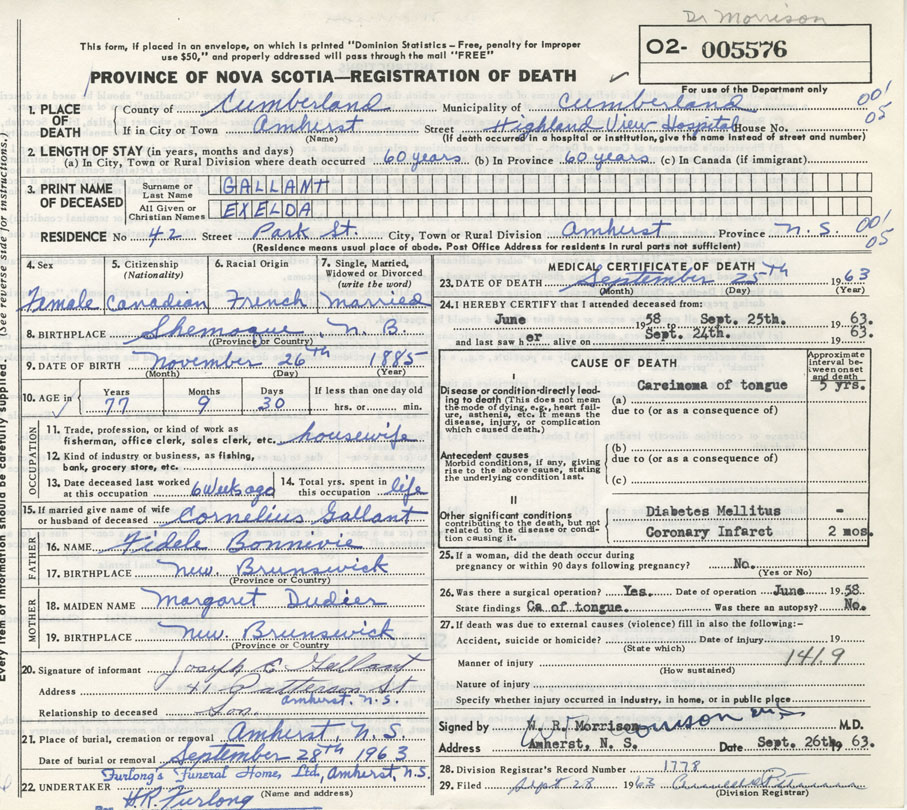 Dr Morrison
This form, if placed in an envelope, on which is printed "Dominion Statistics - Free, penalty for improper
use $50," and properly addressed will pass through the mail "FREE"
O2- 005576
PROVINCE OF NOVA SCOTIA—REGISTRATION OF DEATH ✓
For use of the Department only
1. PLACE OF DEATH
County of Cumberland Municipality of Cumberland 001
05
If in City or Town Amherst Street Highland View Hospital House No.
(Name) (If death occurred in a hospital or institution, give the name instead of street and number)
2. LENGTH OF STAY (in years, months and days)
(a) In City, Town or Rural Division where death occurred 60 years (b) In Province 60 years (c) In Canada (if immigrant)
3. PRINT NAME OF DECEASED
Surname or Last Name GALLANT
All Given or Christian Names EXELDA
RESIDENCE No 42 Street Park St. City, Town or Rural Division Amherst Province N.S. 001
05
(Residence means usual place of abode. Post Office Address for residents in rural parts not sufficient)
4. Sex 5. Citizenship (Nationality) 6. Racial Origin 7. Single, Married, Widowed or Divorced (write the word)
Female Canadian French Married
8. BIRTHPLACE Shemogue, N.B.
(Province or Country)
9. DATE OF BIRTH November 26th 1885
(Month) (Day) (Year)
10. AGE in Years Months Days If less than one day old
77 9 30 hrs. or min.
OCCUPATION
11. Trade, profession, or kind of work as
fisherman, office clerk, sales clerk, etc. housewife
12. Kind of industry or business, as fishing,
bank, grocery store, etc.
13. Date deceased last worked at this occupation 6 weeks ago 14. Total yrs. spent in this occupation life
15. If married give name of wife or husband of deceased Cornelius Gallant
FATHER
16. NAME Fidele Bonnivie
17. BIRTHPLACE New Brunswick
(Province or Country)
MOTHER
18. MAIDEN NAME Margaret Dudier
19. BIRTHPLACE New Brunswick
(Province or Country
20. Signature of informant Joseph C Gallant
Address 41 Patterson St
Amherst, N.S.
Relationship to deceased Son
21. Place of burial, cremation or removal Amherst, N.S.
Date of burial or removal September 28th 1963
Furlong's Funeral Home, Ltd, Amherst, N.S.
22. UNDERTAKER (Name and address)
H.R. Furlong
MEDICAL CERTIFICATE OF DEATH
23. DATE OF DEATH September 25th 1963
(Month) (Day) (Year)
24. I HEREBY CERTIFY that I attended deceased from:
June 1958 to Sept. 25th. 1963.
and last saw her alive on Sept. 24th. 1963.
CAUSE OF DEATH
Approximate interval between onset and death
I
Disease or condition directly leading to death (This does not mean the mode of dying, e.g., heart failure, asthenia, etc. It means the disease, injury, or complication which caused death.)
Carcinoma of tongue 5 yrs.
(a)
due to (or as a consequence of)
Antecedent causes
Morbid conditions, if any, giving rise to the above cause, stating the underlying condition last.
(b)
due to (or as a consequence of)
(c)
II
Other significant conditions contributing to the death, but not related to the disease or condition causing it.
Diabetes Mellitus -
Coronary Infarct 2 mos.
25. If a woman, did the death occur during
pregnancy or within 90 days following pregnancy? No.
(Yes or No)
26. Was there a surgical operation? Yes. Date of operation June 1958.
State findings Ca of tongue. Was there an autopsy? No.
27. If death was due to external causes (violence) fill in also the following:-
Accident, suicide or homicide? Date of injury 19
(State which)
Manner of injury 141.9
(How sustained)
Nature of injury
Specify whether injury occurred in industry, in home, or in public place
Signed by W. R. Morrison M.D.
Address Amherst, N. S. Date Sept. 26th 1963.
28. Division Registrar's Record Number 1778
29. Filed Sept 28 1963
(Division Registrar)
Every item of information should be carefully supplied. (See reverse side for instructions.)